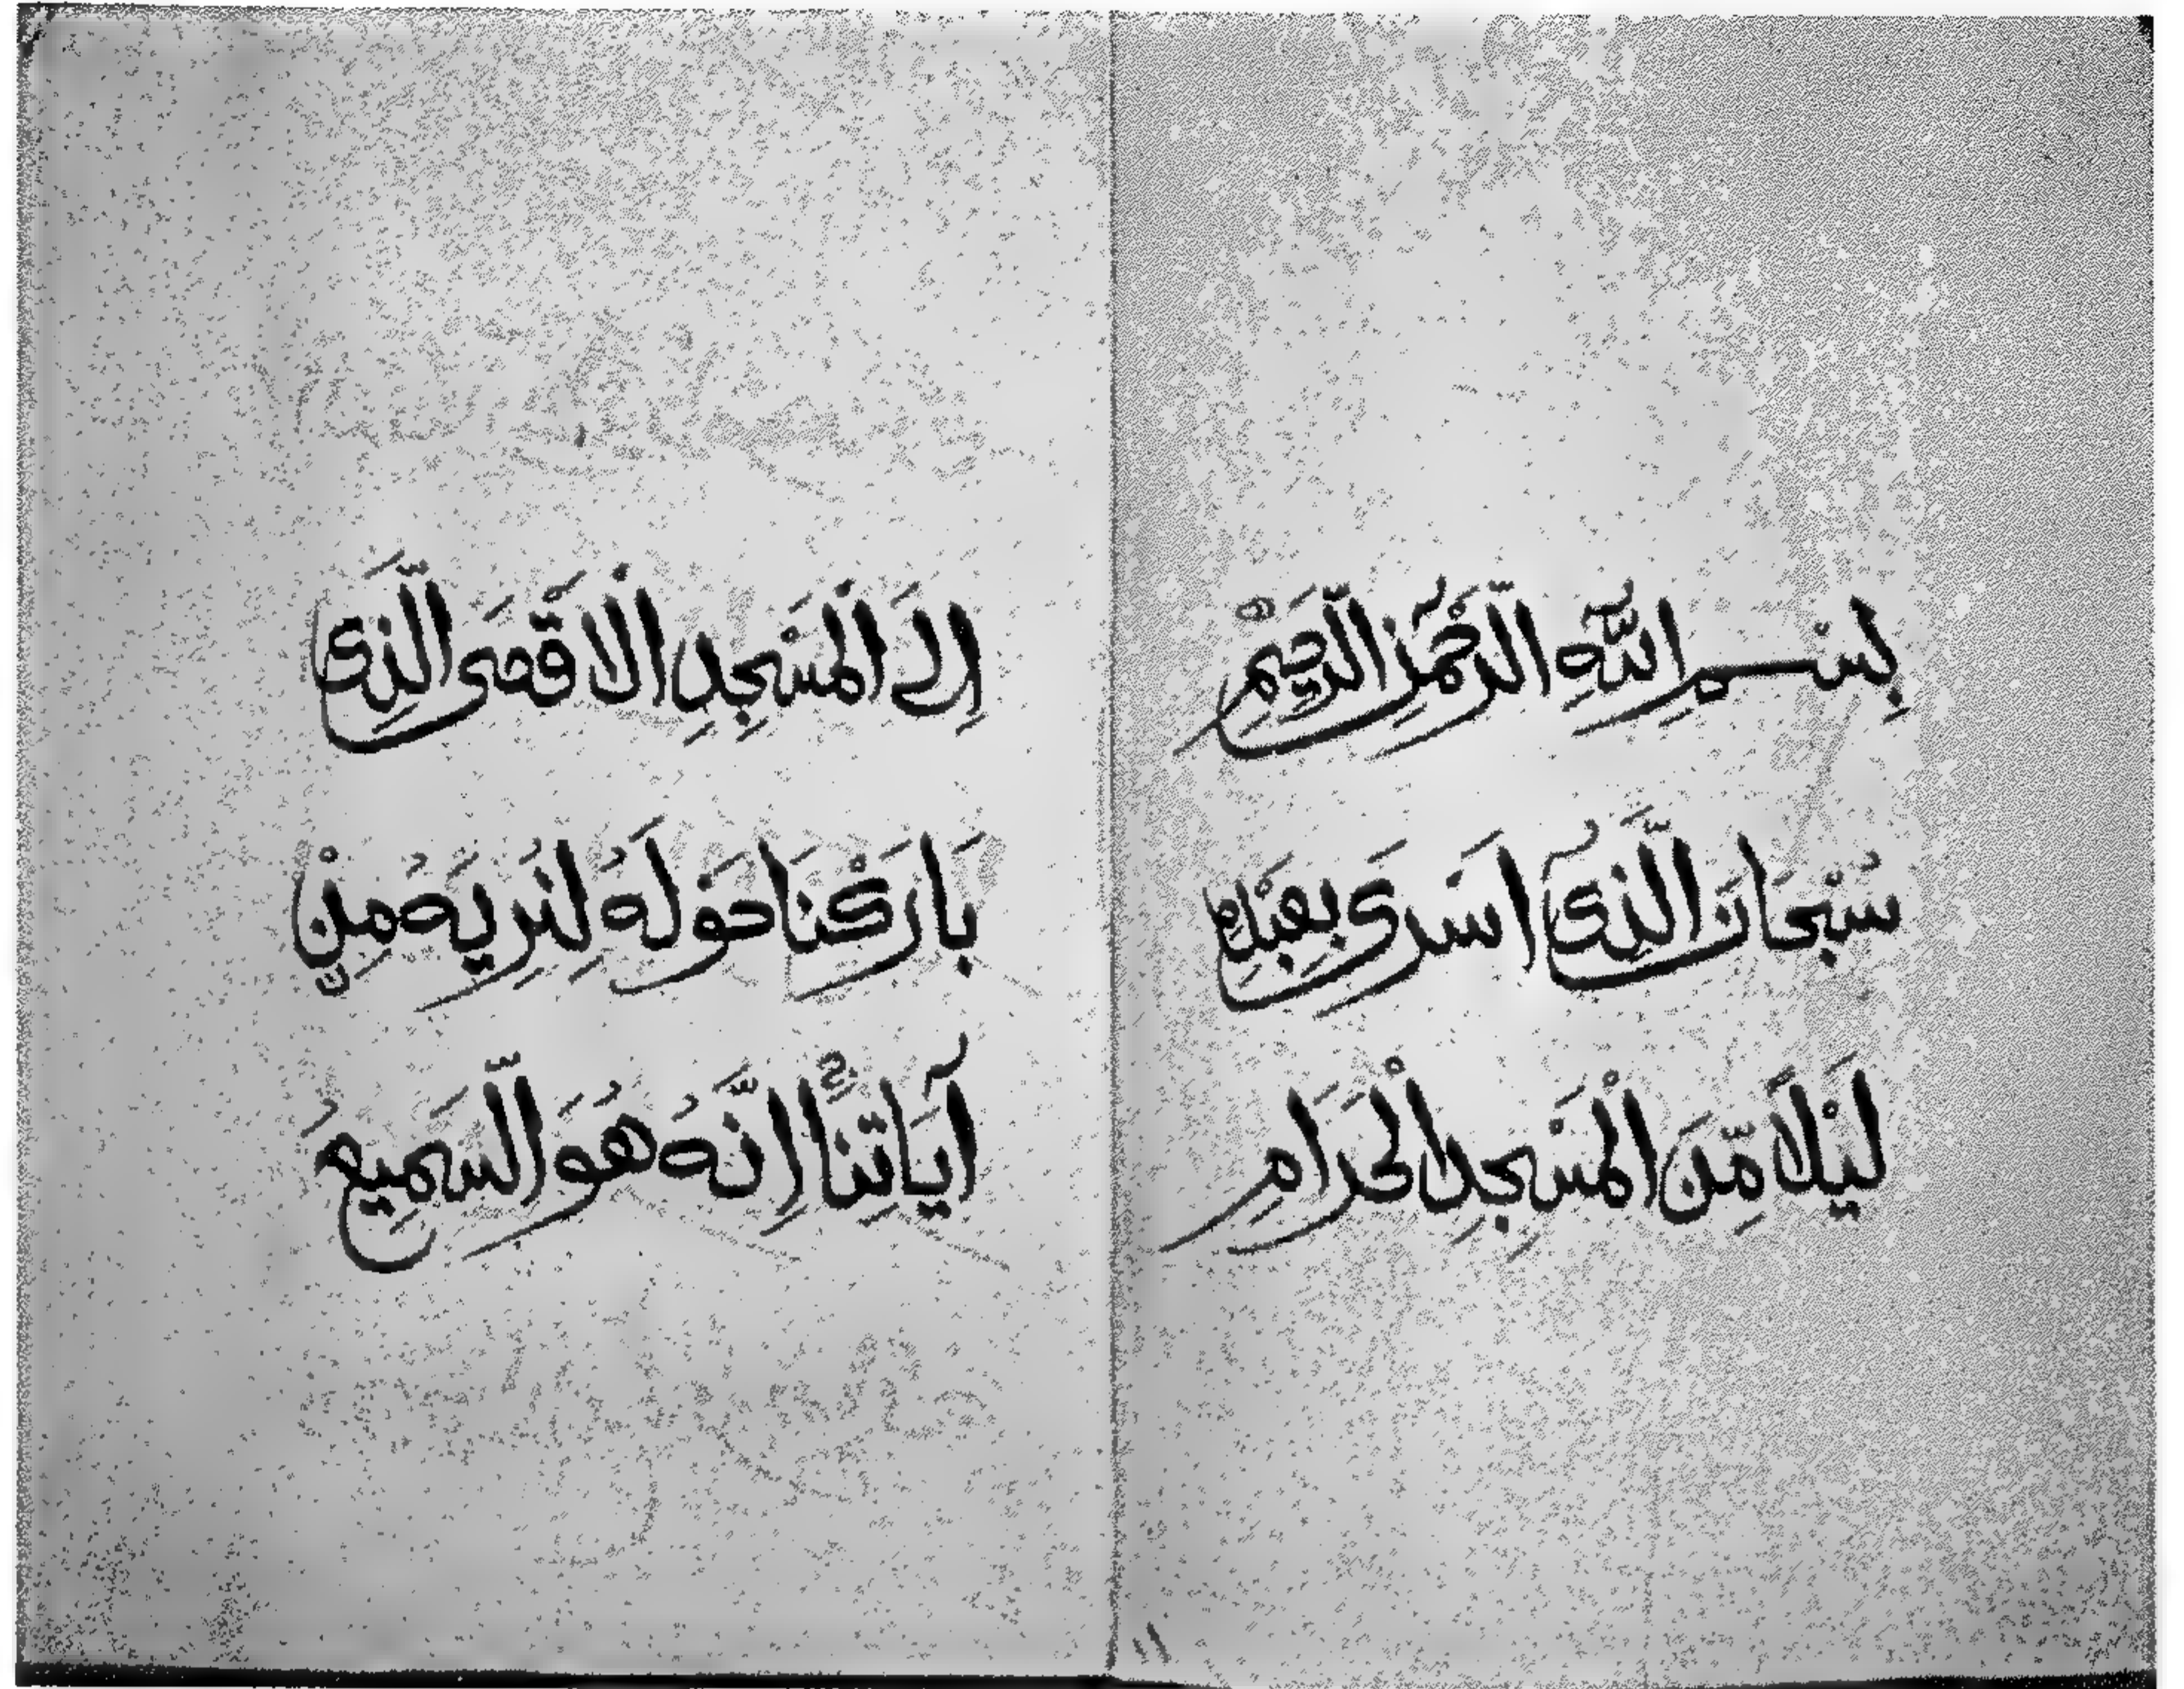 بِسْمِ اللّٰهِ الرَّحْمٰنِ الرَّحِيْمِ
سُبْحَانَ الَّذِىٓ اَسْرَىٰ بِعَبْدِهِ
لَيْلًا مِّنَ الْمَسْجِدِ الْحَرَامِ
اِلَى الْمَسْجِدِ الْاَقْصَى الَّذِى
بَارَكْنَا حَوْلَهُ لِنُرِيَهُ مِنْ
آيَاتِنَا اِنَّهُ هُوَ السَّمِيعُ